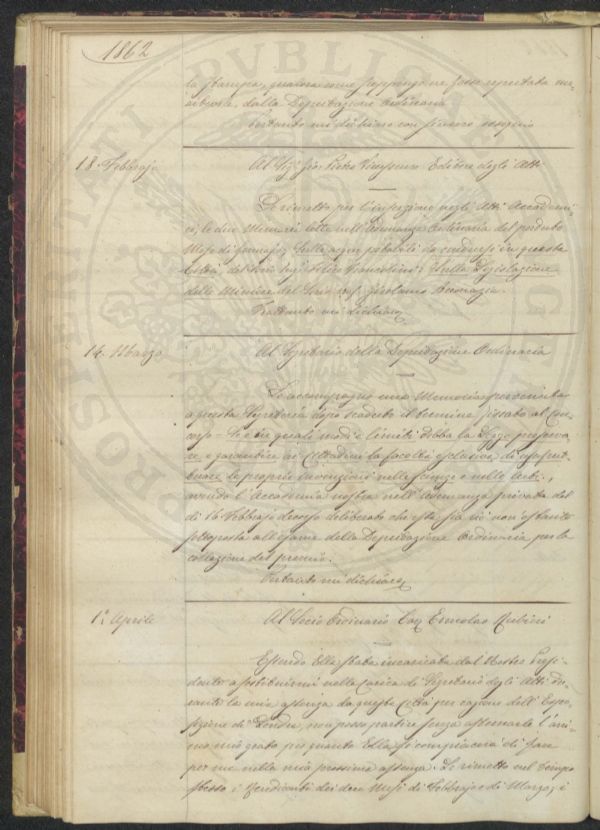 1862
la stampa, qualora come suppongo ne fosse reputata me-
ritevole, dalla Deputazione Ordinaria
Pertanto mi dichiaro con sincero ossequio
18. Febbrajo
Al Sig. Gio. Pietro Editore degli Atti
Le rimetto per l'inserzione negli Atti Accademi-
ci, le due Memorie lette nell'Adunanza Ordinaria del perduto
Mese di Gennajo, sulle acque potabili da condursi in questa
Città, del Socio Sig. Felice Francolini: e sulla Legislazione
delle Miniere del Socio Girolamo
Frattanto mi dichiaro
14. Marzo
Al Segretario della Deputazione Ordinaria
Le accompagno una Memoria pervenuta
a questa Segreteria dopo scaduto il termine fissato al Con-
corso - Se e in quali modi e limiti debba la Legge preserva-
re, e garantire ai Cittadini la facoltà esclusiva di usufrut-
tuare le proprie invenzioni nelle scienze e nelle Arti.,
avendo l'Accademia nostra nell'adunanza privata del
dì 16. Febbrajo decorso deliberato che essa sia ciò non ostante
sottoposta all'esame della Deputazione Ordinaria per la
collazione del premio.
Pertanto mi dichiaro
1°. Aprile
Al Socio Ordinario Cav. Ermolao Rubieri
Essendo Ella stata incaricata dal Nostro Presi-
dente a sostituirmi nella Carica di Segretario degli Atti du-
rante la mia assenza da questa Città per cagione dell'Espo-
sizione di Londra, non posso partire senza esternarle l'ani-
mo mio grato per quanto Ella si compiacerà di fare
per me nella mia prossima assenza. Le rimetto nel tempo
stesso i Rendiconti dei due Mesi di Febbrajo e di Marzo, i